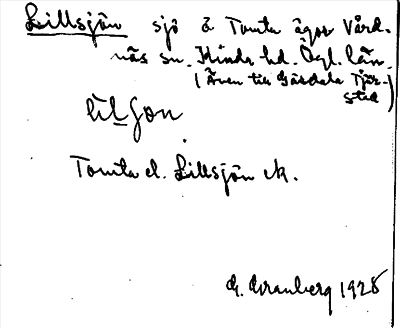 Lillsjön sjö å Tomta ägor Vård-
näs sn. Kinds hd. Ögl. län.
(Även till Gärdala Tjär-
stad)
Tomta el. Lillsjön ek.
G. Granberg 1928